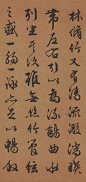 林脩竹又有清流激湍映
帶左右引以為流觴曲水
列坐其次雖無絲竹管絃
之盛一觴一詠亦足以暢敘